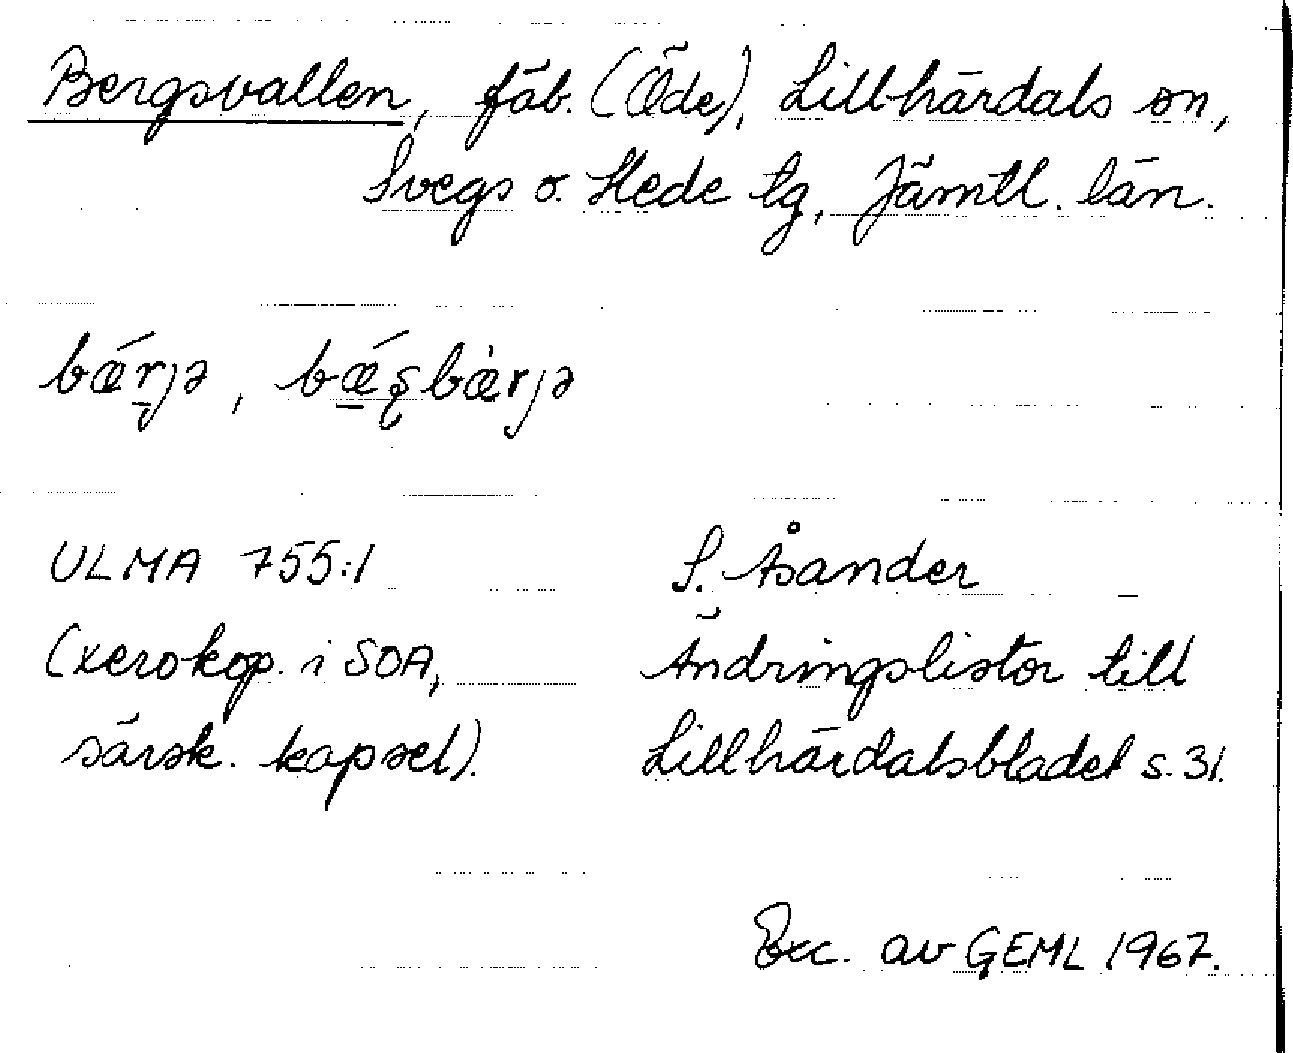 Bergsvallen, fäb. (Öde), Lillhärdals sn,
Svegs o. Hede tg, Jämtl. län.
bǽrjə, bǽʂbæ̀rjə
ULMA 755:1
(xerokop. i SOA,
särsk. kapsel).
S. Åsander
Ändringslistor till
Lillhärdalsbladet s. 31.
Exc. av GEML 1967.